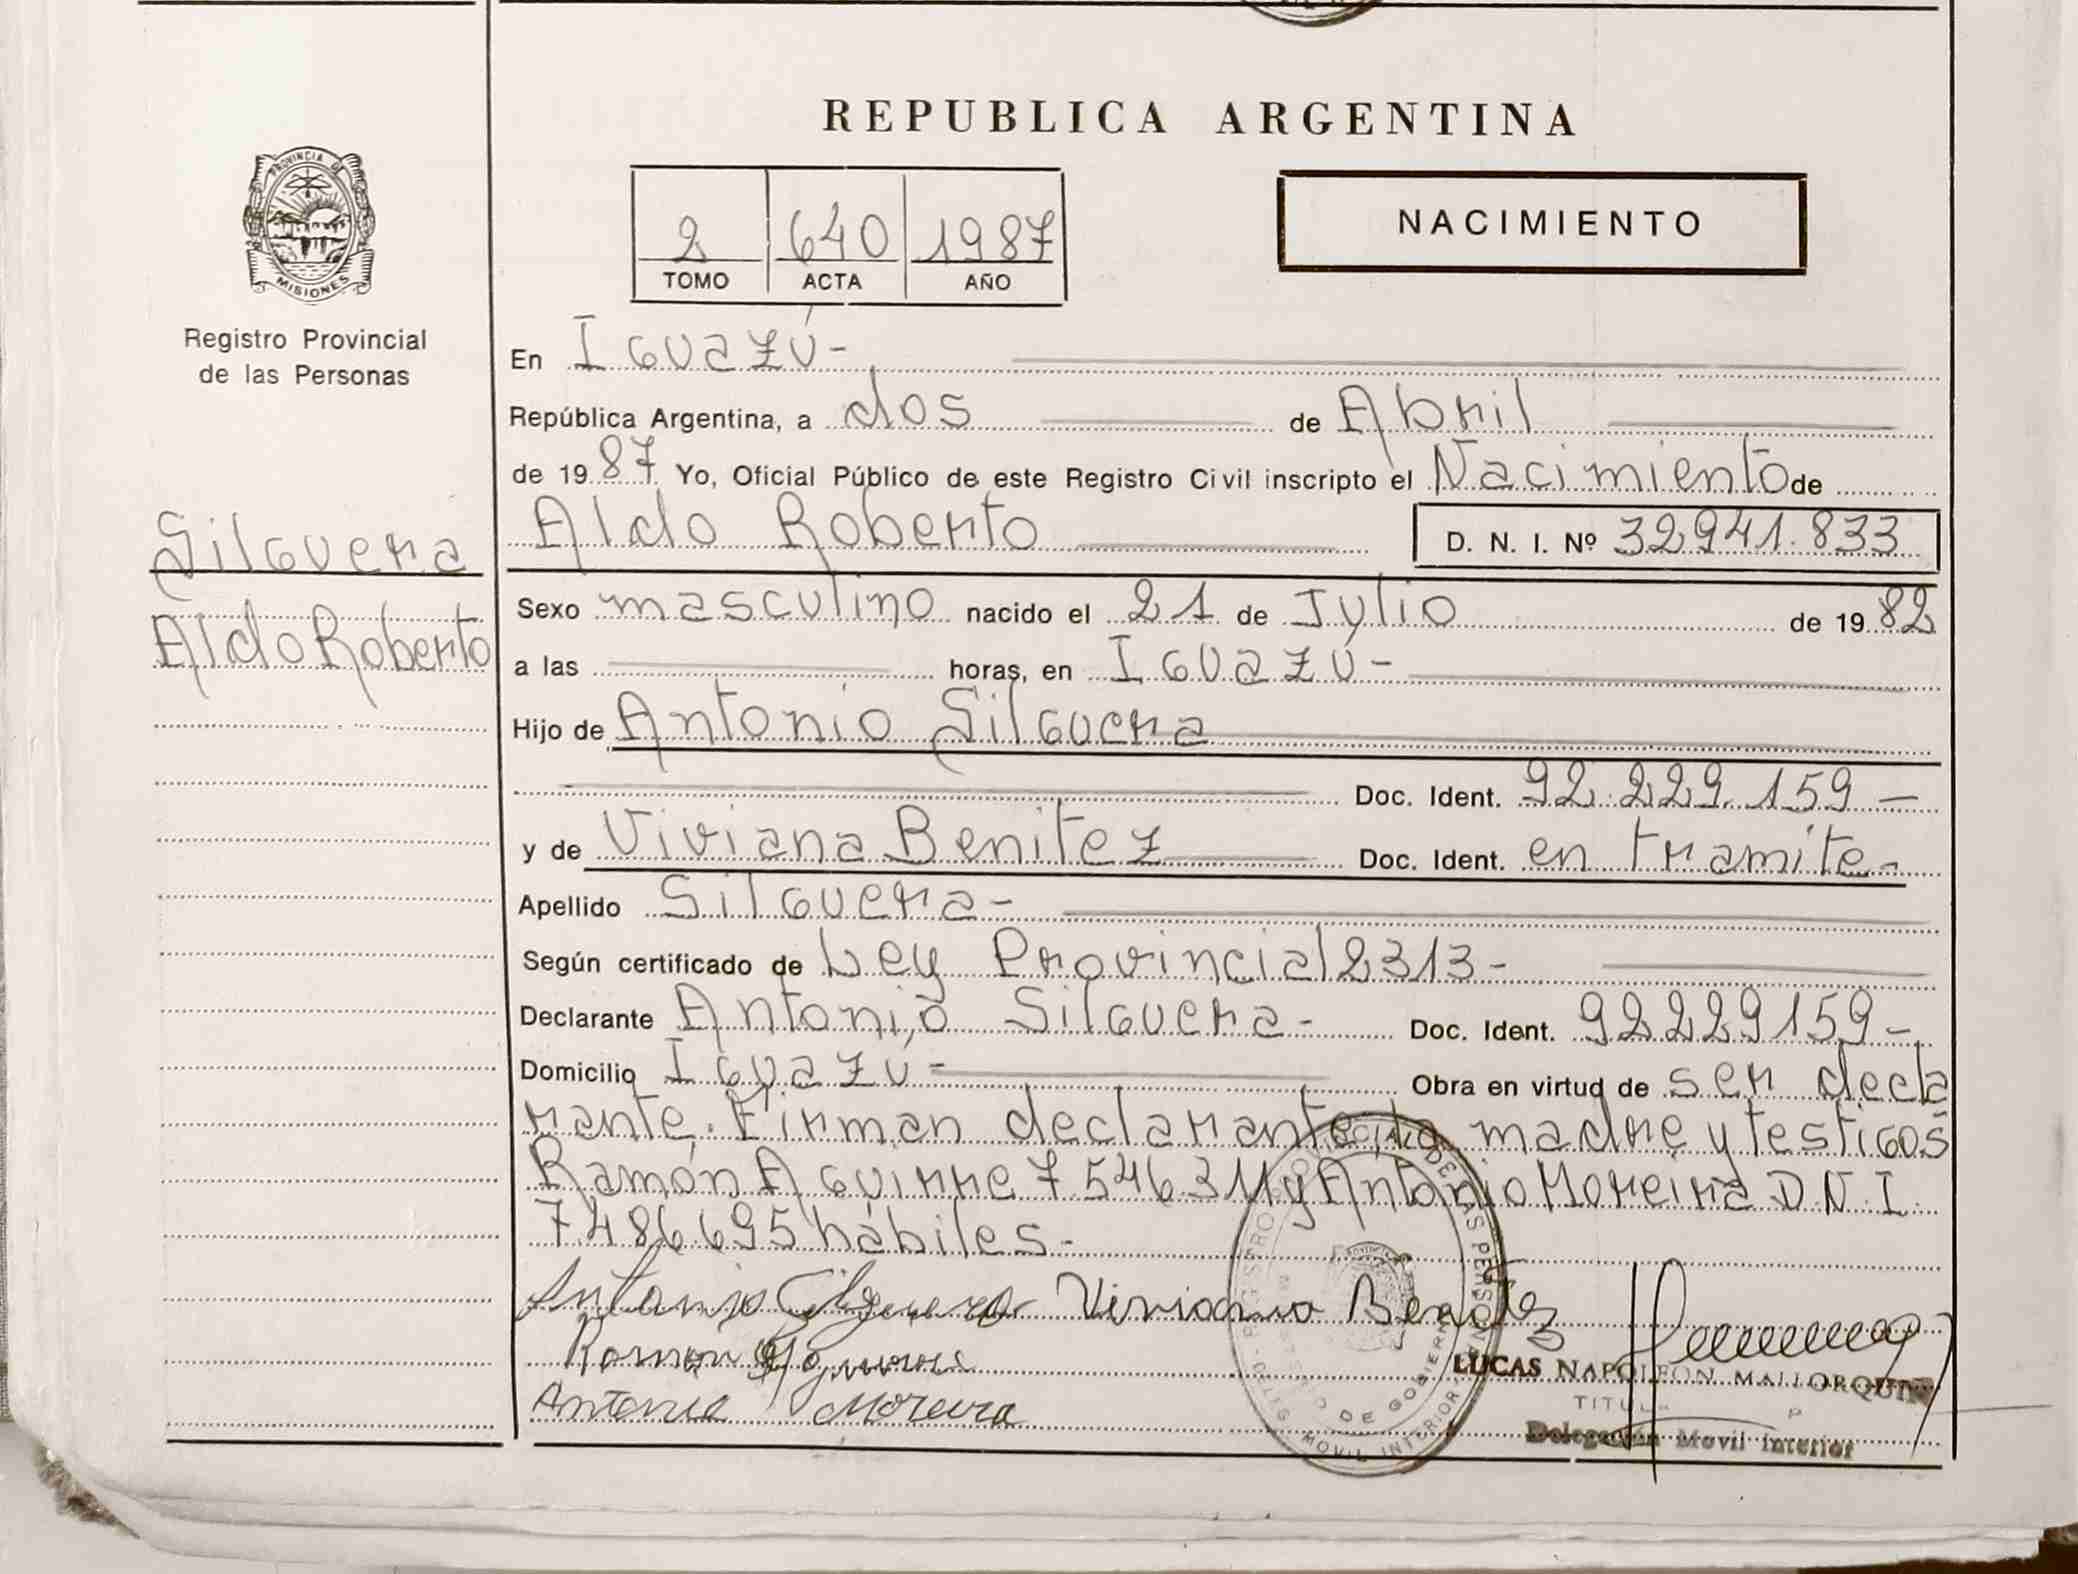 REPUBLICA ARGENTINA
PROVINCIA DE
MISIONES
Registro Provincial
de las Personas
2 640 1987
TOMO ACTA AÑO
NACIMIENTO
En Iguazú-
República Argentina, a dos de Abril
de 1987 Yo, Oficial Público de este Registro Civil inscripto el Nacimiento de
Silguera
Aldo Roberto
Aldo Roberto D. N. I. Nº 32.941.833
Sexo masculino nacido el 21 de Julio de 1982
a las horas, en Iguazú-
Hijo de Antonio Silguera
Doc. Ident. 92.229.159-
y de Viviana Benitez Doc. Ident. en tramite-
Apellido Silguera-
Según certificado de Ley Provincial 2313-
Declarante Antonio Silguera- Doc. Ident. 92229159-
Domicilio Iguazú- Obra en virtud de ser decla
rante. Firman declarante, la madre y testigos
Ramón Aguirre 7546311 y Antonio Moreira D.N.I.
7486695 hábiles.-
Antonio Silguero Viviana Benitez
Ramon Aguirre
Antonio Moreira
LUCAS NAPOLEON MALLORQUIN
TITUL
Delegación Movil Interior
REGISTRO PROVINCIAL DE LAS PERSONAS
DE GOBIERNO
MOVIL INTERIOR